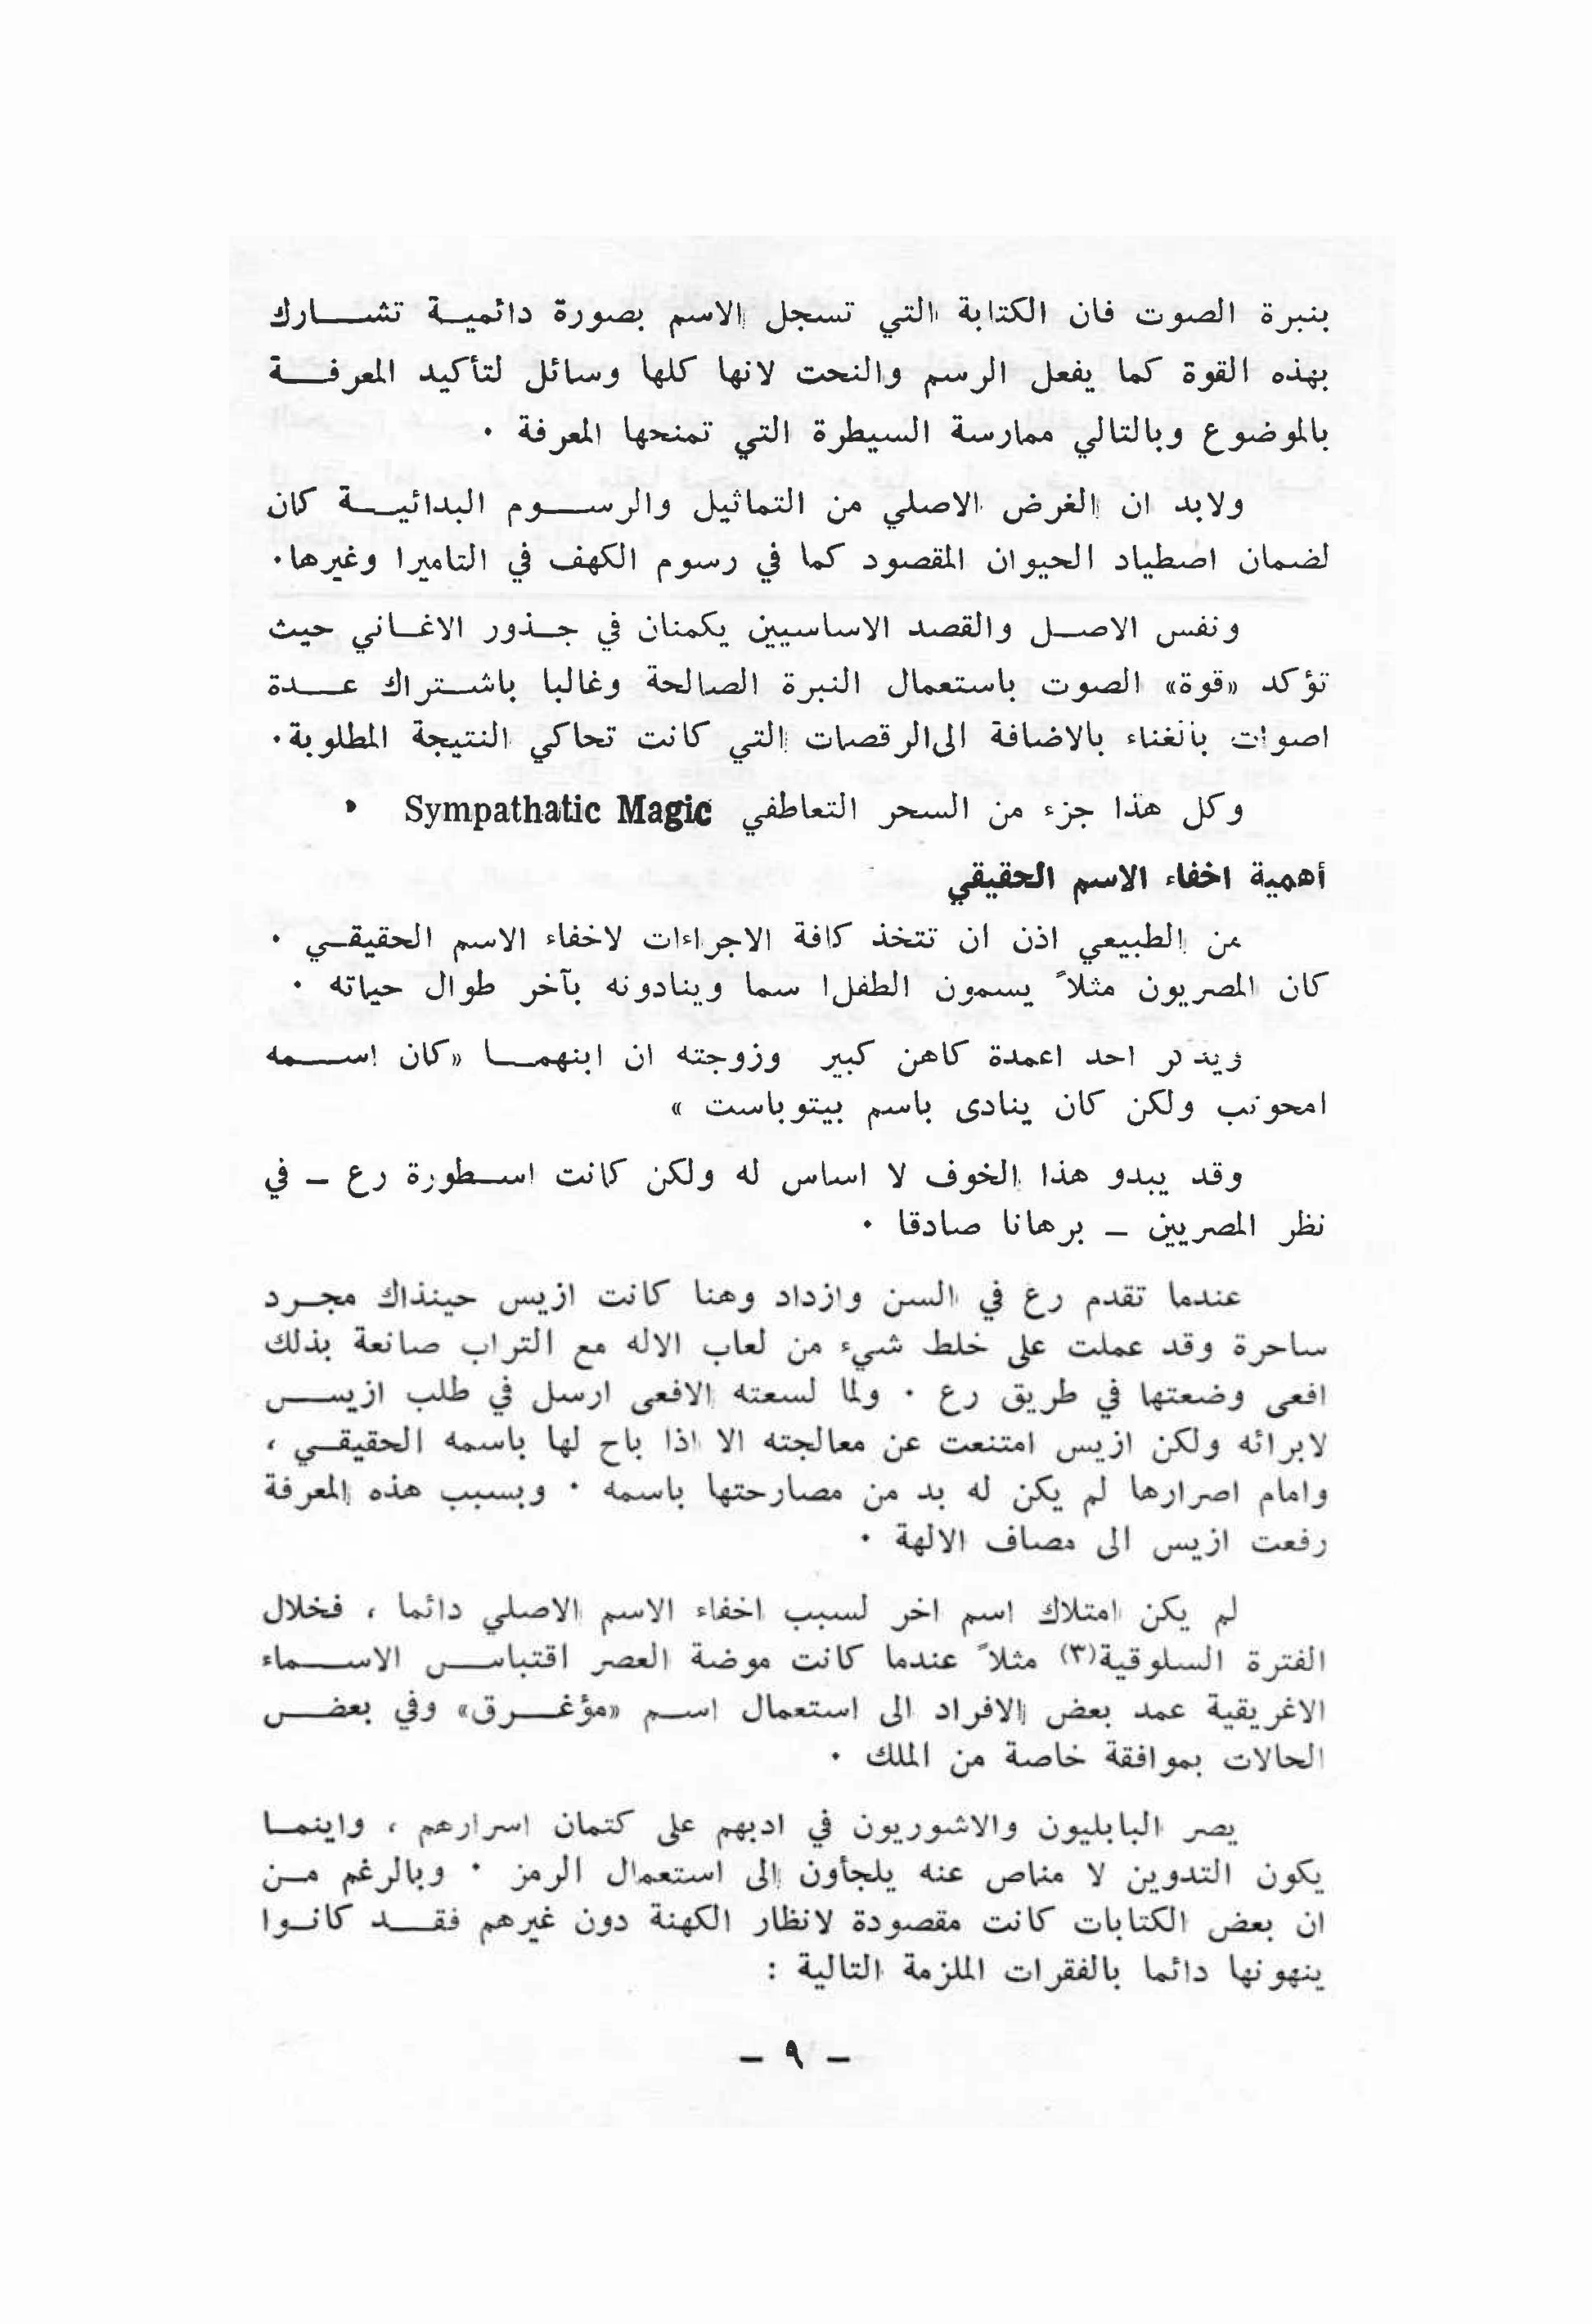 بنبرة الصوت فان الكتابة التي تسجل الاسم بصورة دائمية تشارك
بهذه القوة كما يفعل الرسم والنحت لانها كلها وسائل لتأكيد المعرفة
بالموضوع وبالتالي ممارسة السيطرة التي تمنحها المعرفة ٠
ولابد ان الغرض الاصلي من التماثيل والرسوم البدائية كان
لضمان اصطياد الحيوان المقصود كما في رسوم الكهف في التاميرا وغيرها٠
ونفس الاصل والقصد الاساسيين يكمنان في جذور الاغاني حيث
تؤكد «قوة» الصوت باستعمال النبرة الصالحة وغالبا باشتراك عدة
اصوات بالغناء بالاضافة الى الرقصات التي كانت تحاكي النتيجة المطلوبة٠
وكل هذا جزء من السحر التعاطفي Sympathatic Magic ٠
أهمية اخفاء الاسم الحقيقي
من الطبيعي اذن ان تتخذ كافة الاجراءات لاخفاء الاسم الحقيقي ٠
كان المصريون مثلاً يسمون الطفل ا سما وينادونه بآخر طوال حياته ٠
ويذكر احد اعمدة كاهن كبير وزوجته ان ابنهما «كان اسمه
امحوتب ولكن كان ينادى باسم بيتوباست »
وقد يبدو هذا الخوف لا اساس له ولكن كانت اسطورة رع – في
نظر المصريين – برهانا صادقا ٠
عندما تقدم رع في السن وازداد وهنا كانت ازيس حينذاك مجرد
ساحرة وقد عملت على خلط شيء من لعاب الاله مع التراب صانعة بذلك
افعى وضعتها في طريق رع ٠ ولما لسعته الافعى ارسل في طلب ازيس
لابرائه ولكن ازيس امتنعت عن معالجته الا اذا باح لها باسمه الحقيقي ،
وامام اصرارها لم يكن له بد من مصارحتها باسمه ٠ وبسبب هذه المعرفة
رفعت ازيس الى مصاف الالهة ٠
لم يكن امتلاك اسم اخر لسبب اخفاء الاسم الاصلي دائما ، فخلال
الفترة السلوقية(٣) مثلاً عندما كانت موضة العصر اقتباس الاسماء
الاغريقية عمد بعض الافراد الى استعمال اسم «مؤغرق» وفي بعض
الحالات بموافقة خاصة من الملك ٠
يصر البابليون والاشوريون في ادبهم على كتمان اسرارهم ، واينما
يكون التدوين لا مناص عنه يلجأون الى استعمال الرمز ٠ وبالرغم من
ان بعض الكتابات كانت مقصودة لانظار الكهنة دون غيرهم فقد كانوا
ينهونها دائما بالفقرات الملزمة التالية :
– ٩ –